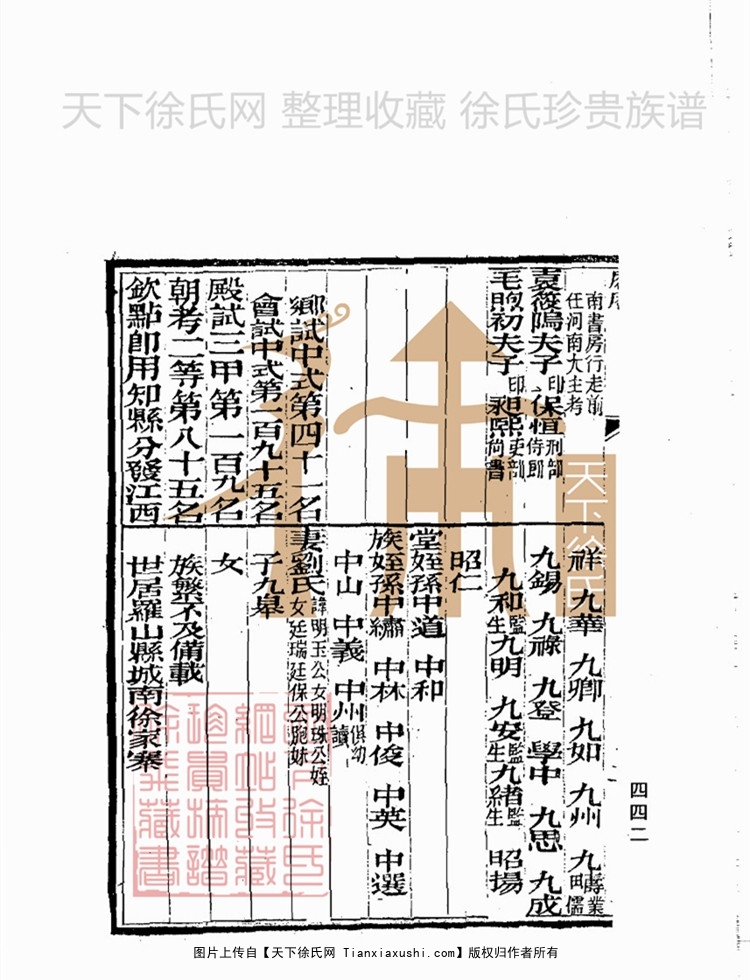 天下徐氏网 整理收藏 徐氏珍贵族谱
南書房行走前
任河南大主考
袁筱隖夫子印保恒刑部侍郎
毛煦初夫子印昶熙吏部尚書
鄉試中式第四十一名
會試中式第一百九十五名
殿試三甲第一百九名
朝考二等第八十五名
欽點即用知縣分發江西
祥 九華 九卿 九如 九州 九疇業儒
九錫 九祿 九登 學中 九思 九成
九和監生 九明 九安監生 九緒監生 昭揚
昭仁
堂姪孫中道 中和
族姪孫中繡 中林 中俊 中英 中選
中山 中義 中州俱幼讀
妻劉氏諱明玉公女明珠公姪女廷瑞廷保公胞妹
子九皋
女
族繁不及備載
世居羅山縣城南徐家寨
四四二
天下徐氏
图片上传自【天下徐氏网 Tianxiaxushi.com】版权归作者所有